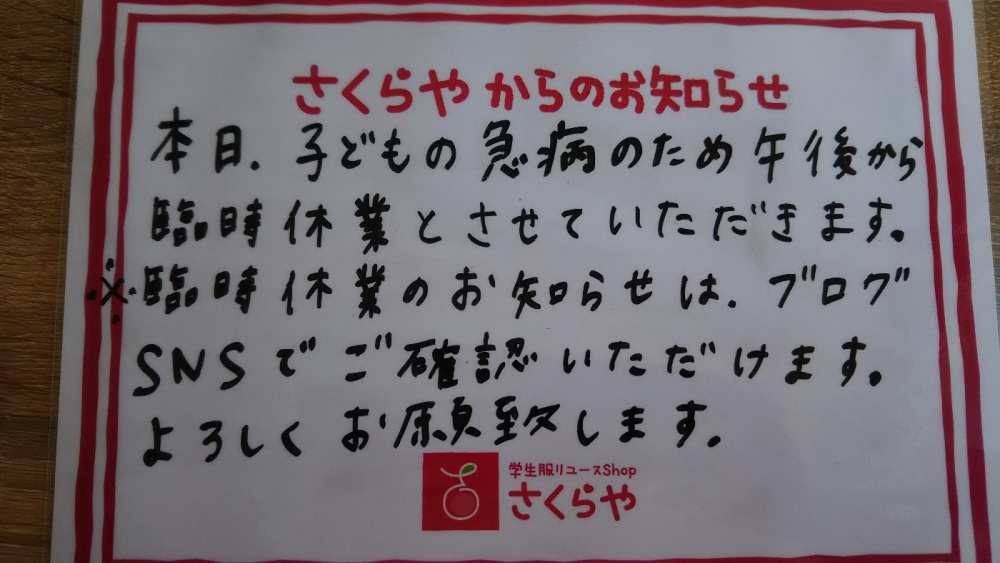 さくらや からのお知らせ
本日、子どもの急病のため午後から
臨時休業とさせていただきます。
※臨時休業のお知らせは、ブログ
SNSでご確認いただけます。
よろしくお願致します。
学生服リユースShop
さくらや